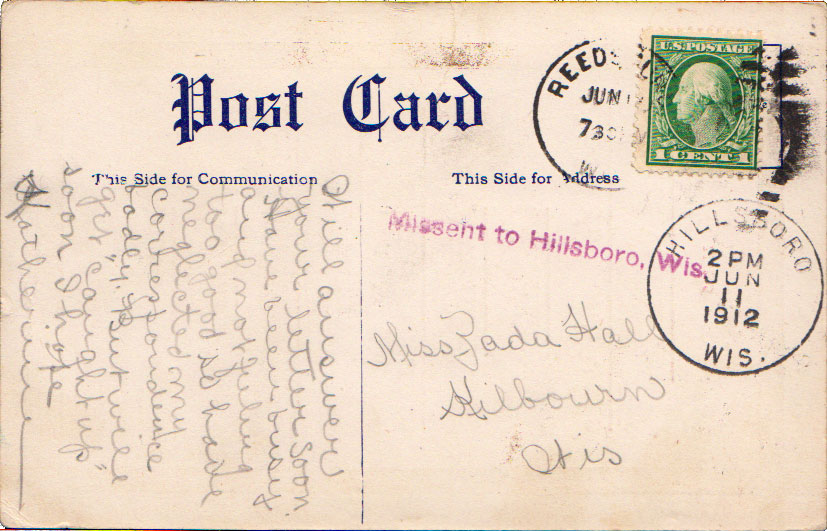 Post Card
This Side for Communication
This Side for Address
U.S. POSTAGE
1 CENT 1
JUN
HILLSBORO
2 PM
JUN
11
1912
WIS.
Missent to Hillsboro, Wis.
Miss Zada Hall
Kilbourn
Wis
Will answer
your letter soon.
Have been busy
and not feeling
too good so have
neglected my
correspondence
badly. But will
get "caught up"
soon I hope
Katherine